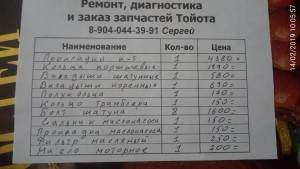 Ремонт, диагностика
и заказ запчастей Тойота
8-904-044-39-91 Сергей
Наименование Кол-во Цена
Прокладки к-т 1 4380=
Кольца поршневые 1 1890=
Вкладыши шатунные 1 580=
Вкладыши коренные 1 690=
Полукольца 1 190=
Кольцо трамблера 1 150=
Болт шатуна 8 1600=
Сальник маслонасоса 1 150=
Прокладка маслонасоса 1 150=
Фильтр масляный 1 250=
Масло моторное 1 200=
14/02/2019 10:05:57